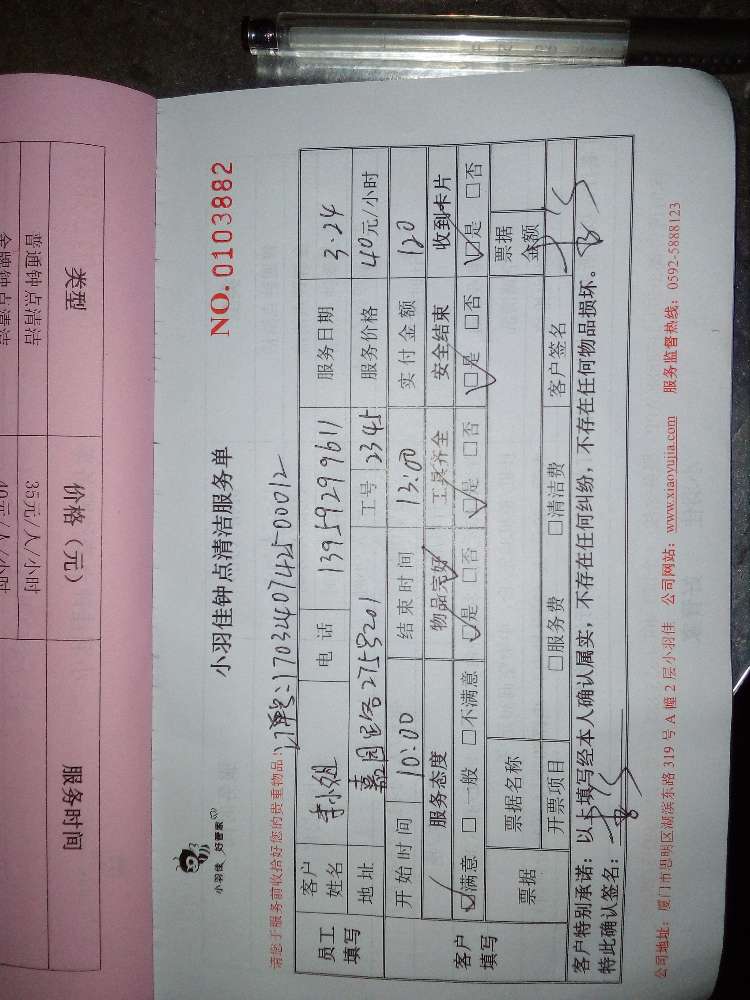 类型 价格（元） 服务时间
普通钟点清洁 35元/人/小时
小羽佳 好管家
小羽佳钟点清洁服务单 NO.0103882
请您于服务前收拾好您的贵重物品！
1703240742500012
员工填写 客户姓名 李小姐 电话 13959299611 服务日期 3.24
地址 嘉园路275号201 工号 2345 服务价格 40元/小时
客户填写 开始时间 10:00 结束时间 13:00 实付金额 120
服务态度 物品完好 工具齐全 安全结束 收到卡片
☑满意 □一般 □不满意 ☑是 □否 ☑是 □否 ☑是 □否 ☑是 □否
票据 票据名称 票据金额
开票项目 □服务费 □清洁费 客户签名
客户特别承诺：以上填写经本人确认属实，不存在任何纠纷，不存在任何物品损坏。
特此确认签名：
公司地址：厦门市思明区湖滨东路319号A幢2层小羽佳 公司网站：www.xiaoyujia.com 服务监督热线：0592-5888123